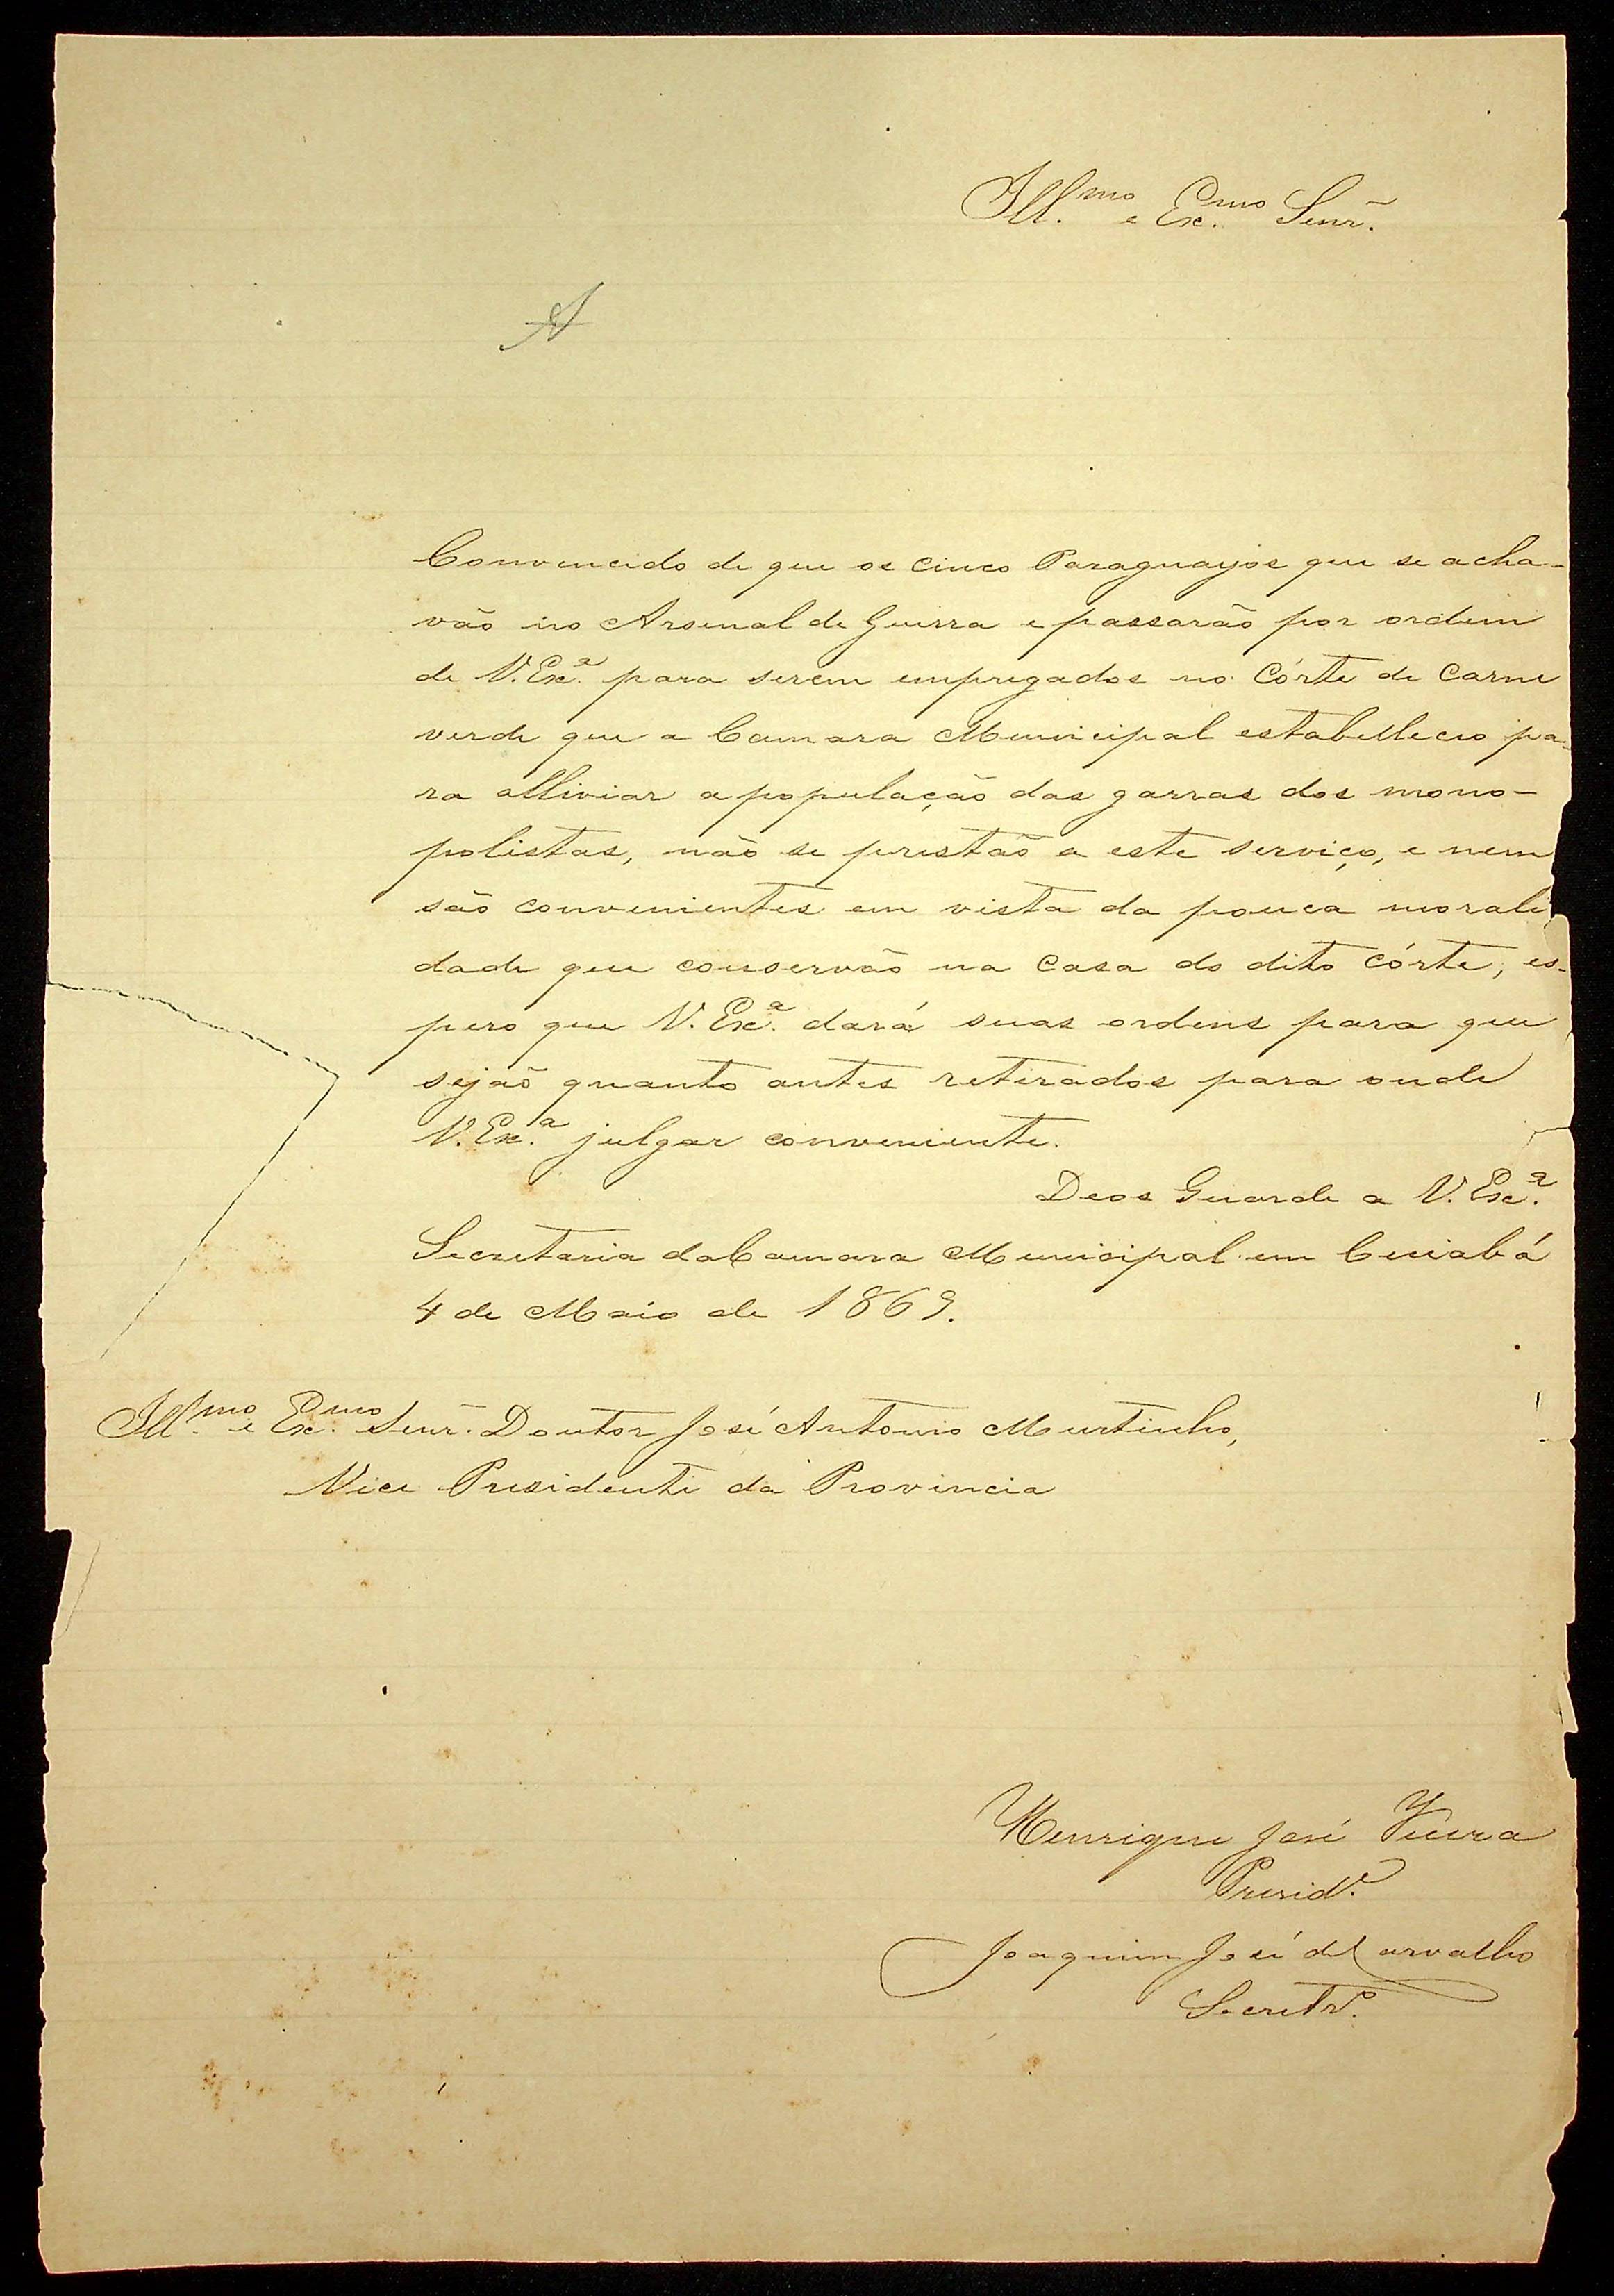 Ill.mo e Ex.mo Senr.
A
Convencido de que os cinco Paraguayos que se acha-
vão no Arsenal de Guerra e passarão por ordem
de V. Ex.ª para serem empregados no córte de carne
verde que a Camara Municipal estabelleceo pa-
ra alliviar a população das garras dos mono-
polistas, não se prestão a este serviço, e nem
são convenientes em vista da pouca morali
dade que conservão na casa do dito córte, es-
pero que V. Ex.ª dará suas ordens para que
sejão quanto antes retirados para onde
V. Ex.ª julgar conveniente.
Deos Guarde a V. Ex.ª
Secretaria da Camara Municipal em Cuiabá
4 de Maio de 1869.
Ill.mo e Ex.mo Senr. Doutor José Antonio Murtinho,
Vice Presidente da Provincia
Henrique José Vieira
Presid.e
Joaquim José de Carvalho
Secretr.o